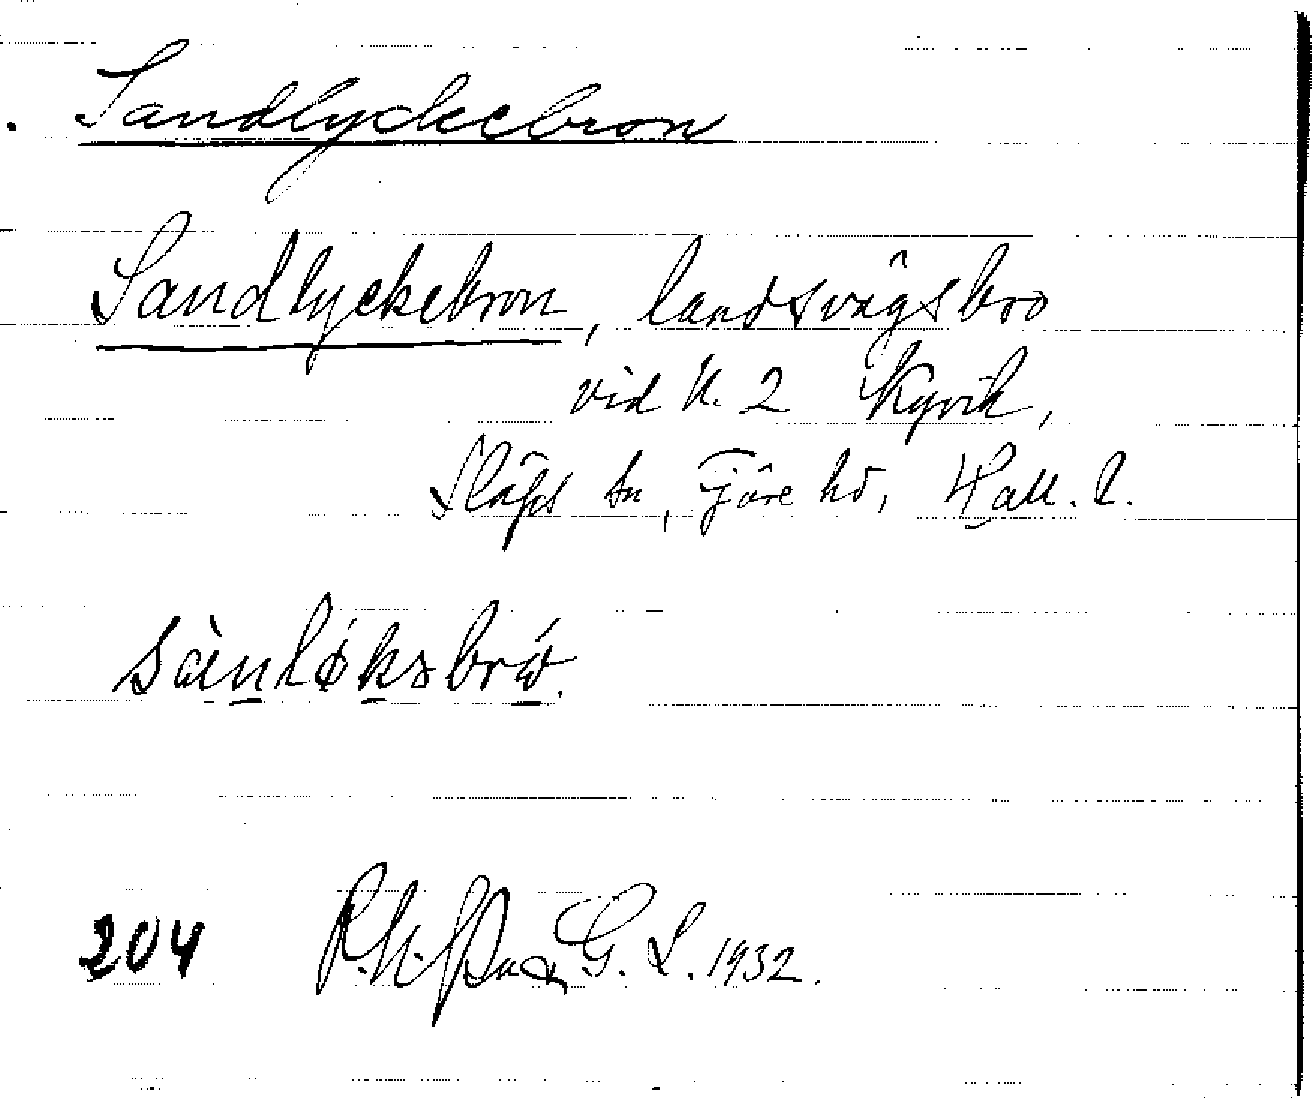 Sandlyckebron
Sandlyckebron, landsvägsbro
vid N. 2 Kyvik,
Släps sn, Fjäre hd, Hall. l.
204 G. L. 1932.